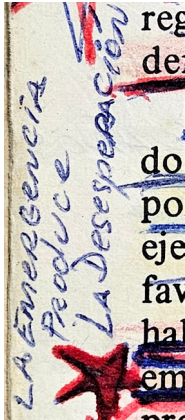 LA EMERGENCIA
Produce
LA DesespeRACION
reg
der
do
po
eje
fav
hal
em